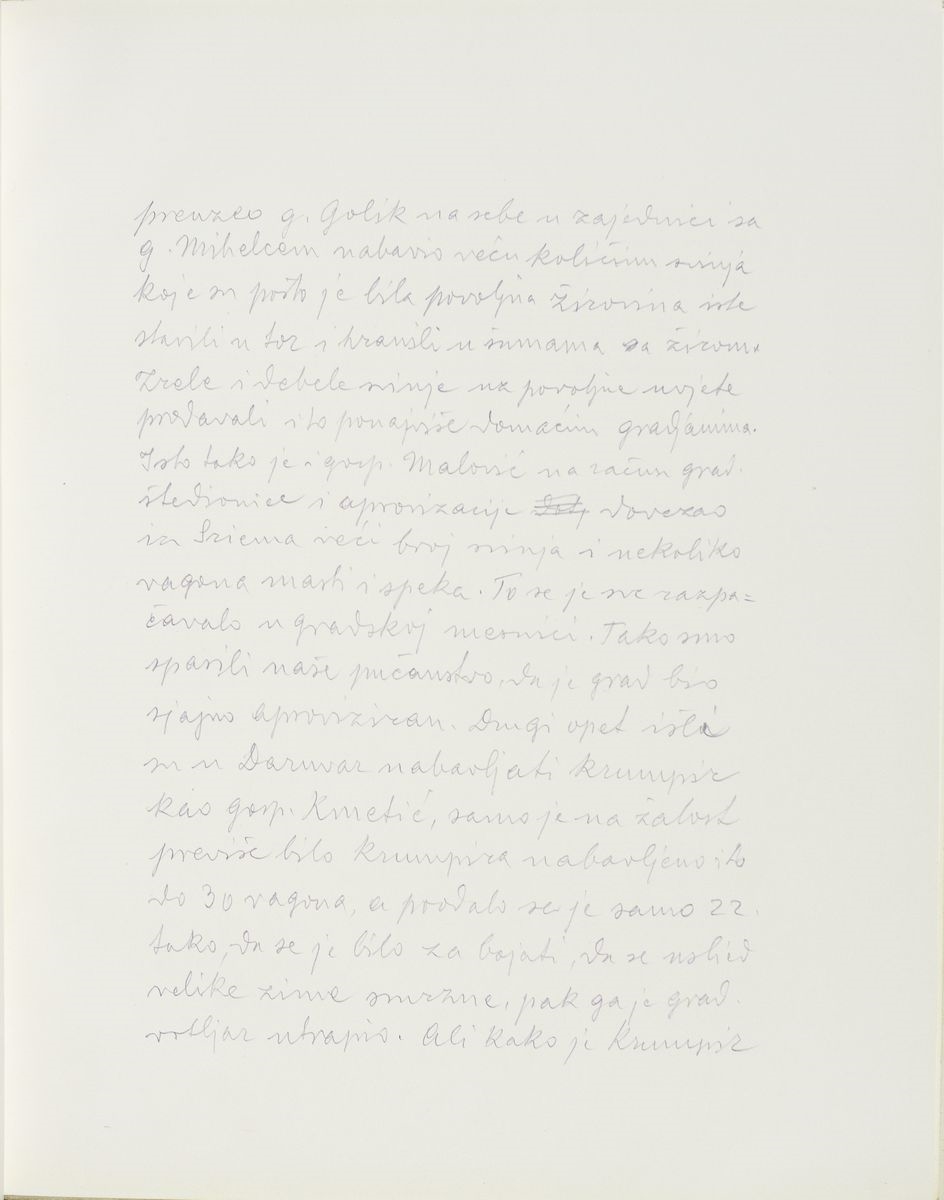 preuzeo g. Golik na sebe u zajednici sa
g. Mihelcem nabavio veću količinu svinja
koje su pošto je bila povoljna žirovina iste
stavili u tor i hranili u šumama sa žirom.
Zrele i debele svinje uz povoljne uvjete
prodavali i to ponajviše domaćim gradjanima.
Isto tako je i gosp. Malović na račun grad.
štedionice i aprovizacije dovezao
iz Sriema veći broj svinja i nekoliko
vagona masti i speka. To se je sve razpa=
čavalo u gradskoj mesnici. Tako smo
spasili naše pučanstvo, da je grad bio
sjajno aproviziran. Drugi opet išli
su u Daruvar nabavljati krumpir
kao gosp. Kmetić, samo je na žalost
previše bilo krumpira nabavljeno i to
do 30 vagona, a prodalo se je samo 22.
tako, da se je bilo za bojati, da se uslied
velike zime smrzne, pak ga je grad.
vrtljar utrapio. Ali kako je krumpir